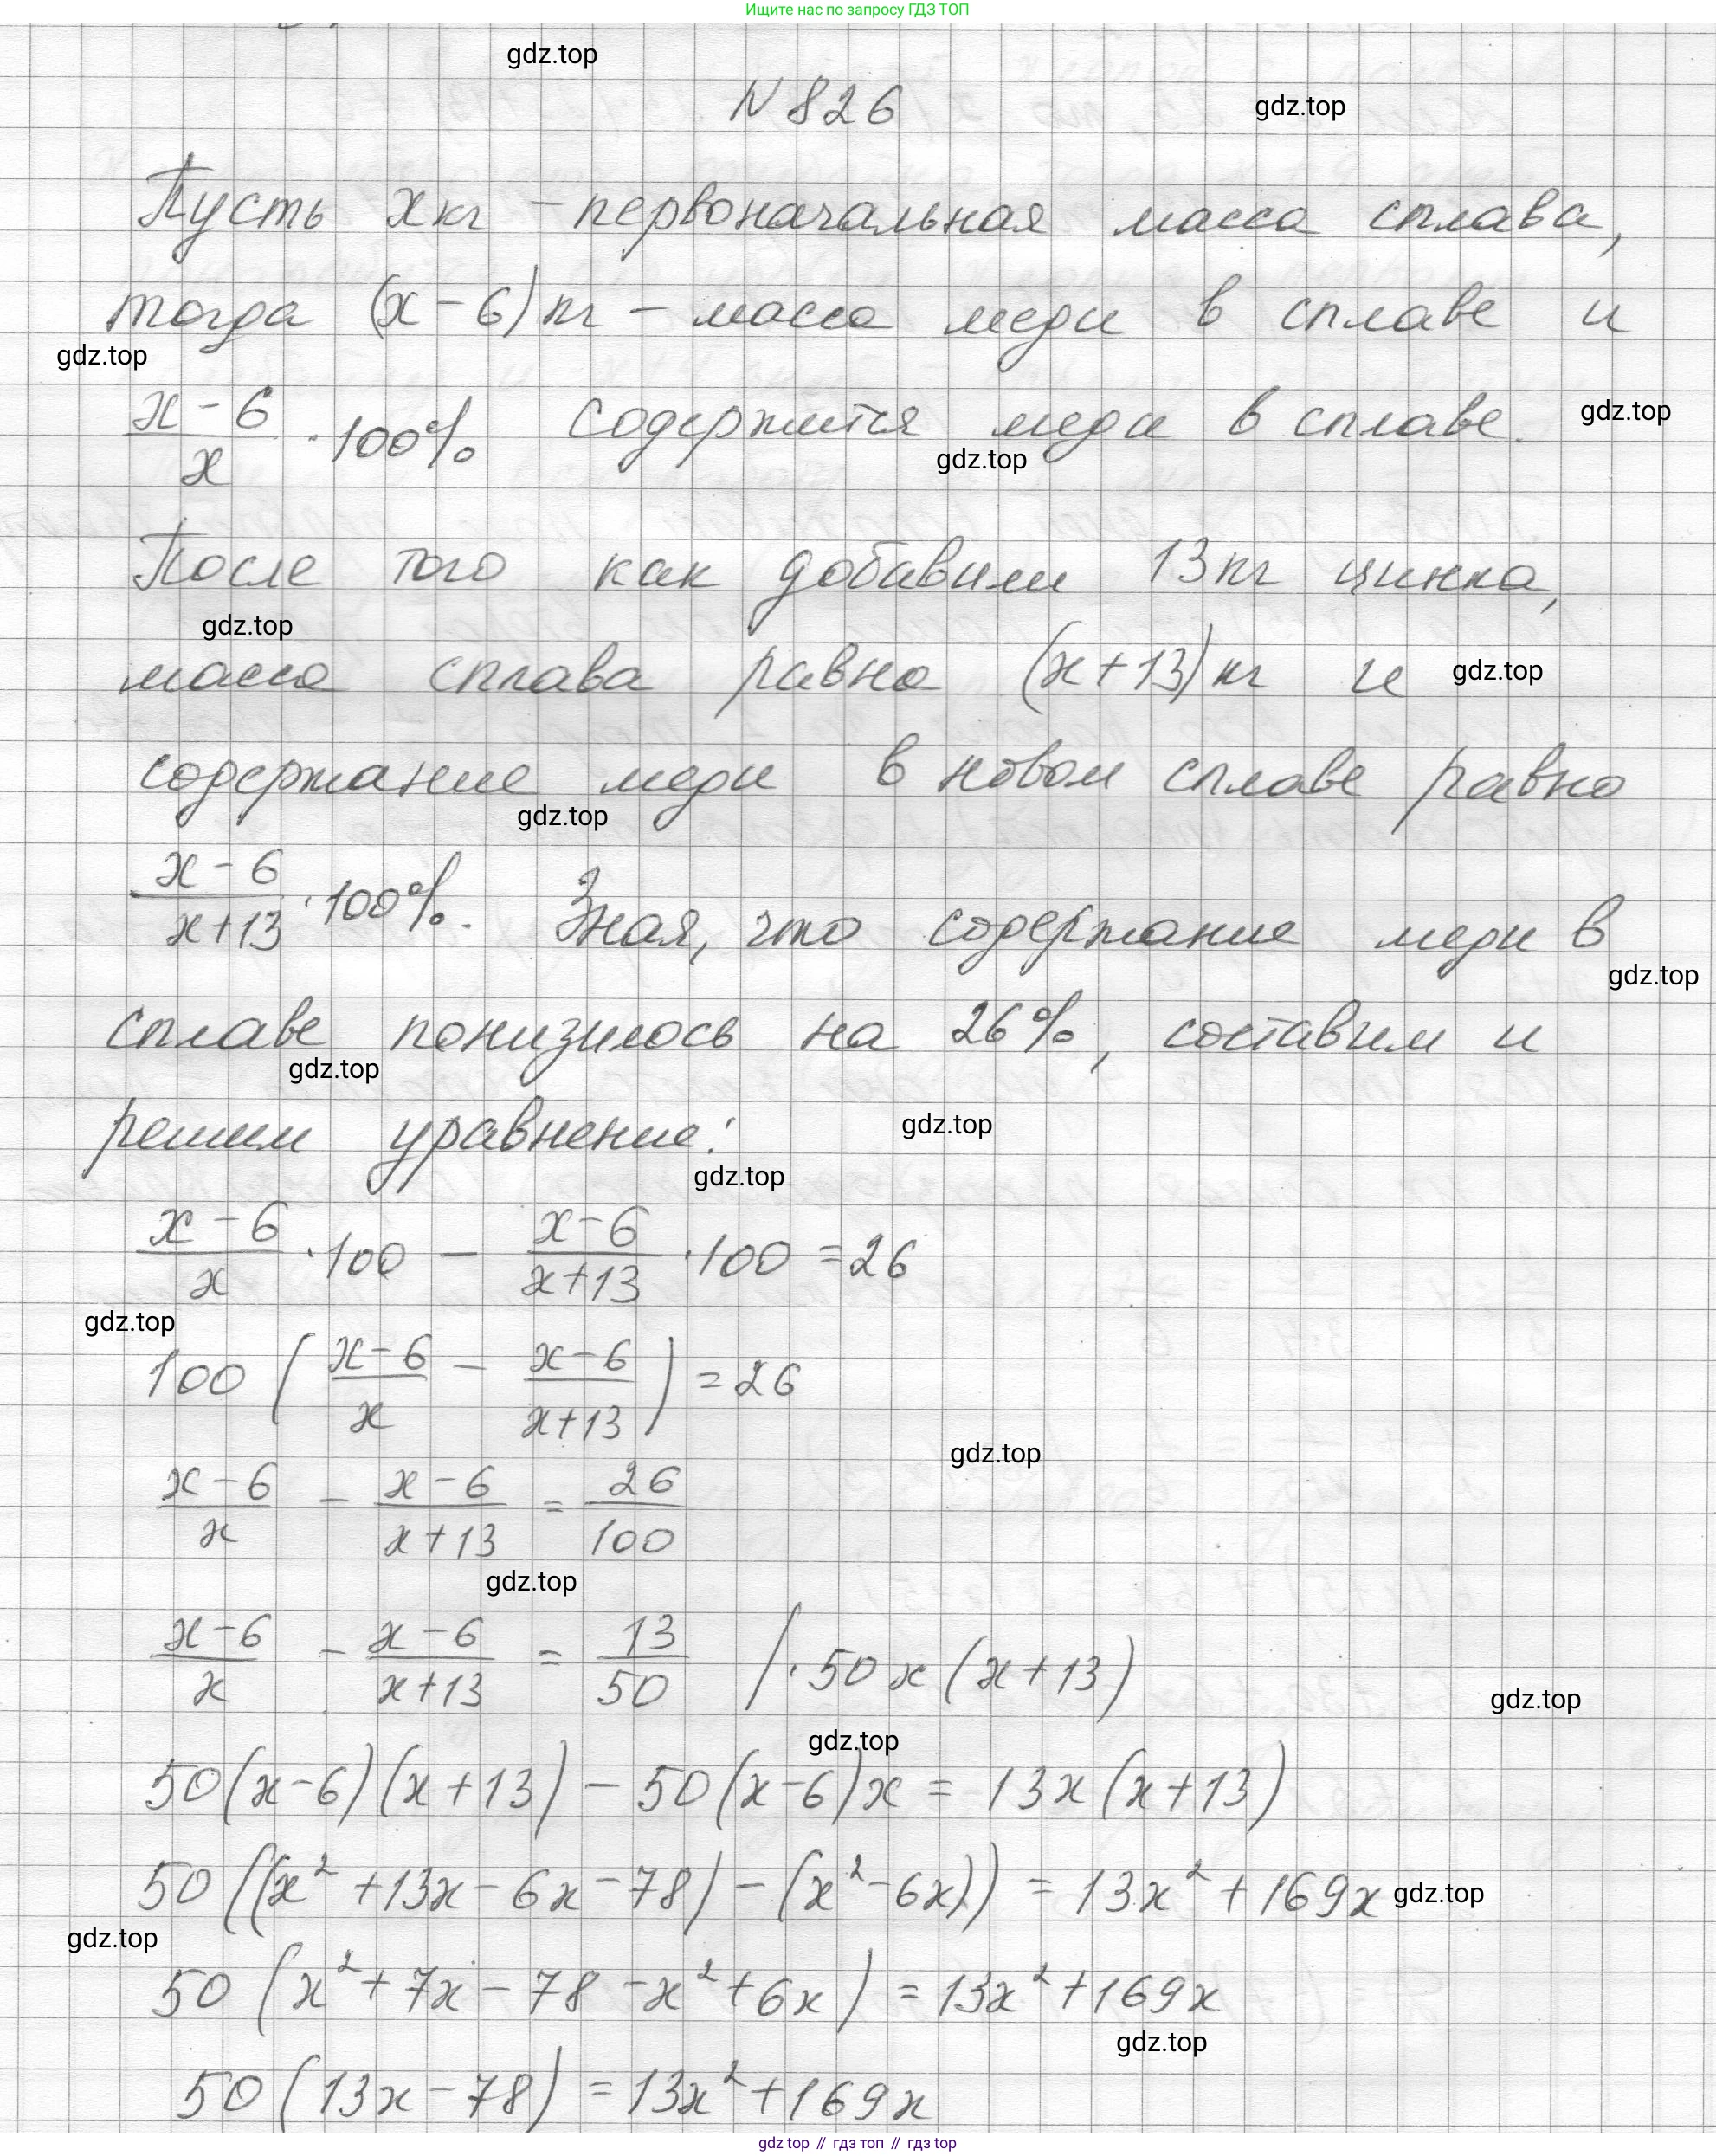 Ищите нас по запросу ГДЗ ТОП
gdz.top
N 826
gdz.top
Пусть x кг - первоначальная масса сплава,
тогда (x - 6) кг - масса меди в сплаве и
gdz.top
(x - 6)/x · 100% содержится меди в сплаве.
gdz.top
gdz.top
После того как добавили 13 кг цинка,
gdz.top
масса сплава равна (x + 13) кг и
gdz.top
содержание меди в новом сплаве равно
gdz.top
(x - 6)/(x + 13) · 100%. Зная, что содержание меди в
gdz.top
сплаве понизилось на 26%, составим и
gdz.top
решим уравнение:
gdz.top
gdz.top
(x - 6)/x · 100 - (x - 6)/(x + 13) · 100 = 26
gdz.top
100 ((x - 6)/x - (x - 6)/(x + 13)) = 26
gdz.top
(x - 6)/x - (x - 6)/(x + 13) = 26/100
gdz.top
(x - 6)/x - (x - 6)/(x + 13) = 13/50 / · 50x (x + 13)
gdz.top
gdz.top
50(x - 6)(x + 13) - 50(x - 6)x = 13x(x + 13)
50((x² + 13x - 6x - 78) - (x² - 6x)) = 13x² + 169x
gdz.top
gdz.top
50 (x² + 7x - 78 - x² + 6x) = 13x² + 169x
gdz.top
50 (13x - 78) = 13x² + 169x
gdz top // гдз топ // гдз top